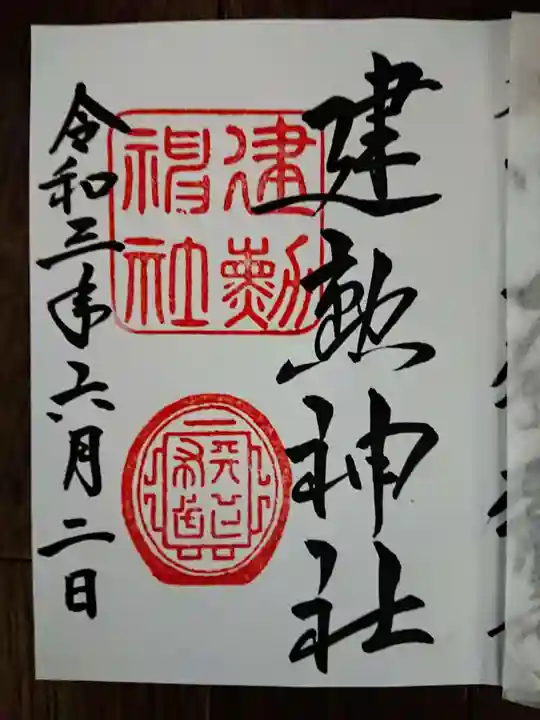 建勲神社
建勲
神社
令和三年六月二日